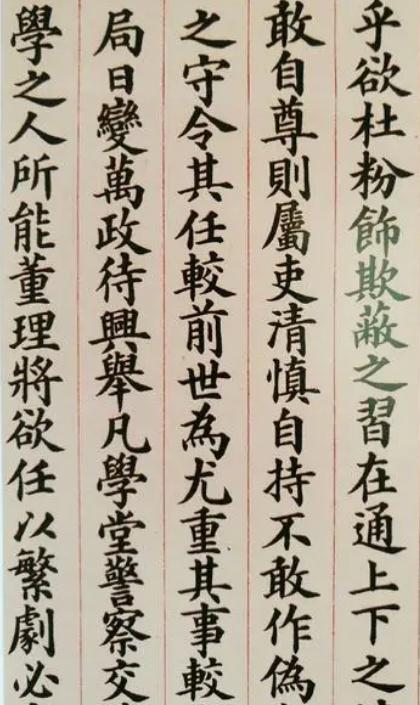 乎欲杜粉飾欺蔽之習在通上下之
敢自尊則屬吏清慎自持不敢作偽
之守令其任較前世為尤重其事較
局日變萬政待興舉凡學堂警察交
學之人所能董理將欲任以繁劇必